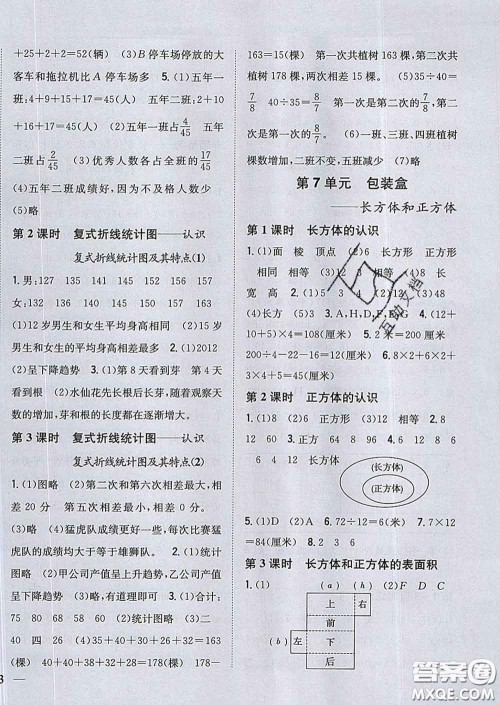 +25+2+2=52(辆)　(3)B 停车场停放的大
客车和拖拉机比 A 停车场多　5.(1)五年一
班:4+9+15+17=45(人)　五年二班:2+10
+16+17=45(人)　(2)五年一班占4/45　五年
二班占2/45　(3)优秀人数各占全班的17/45
(4)五年二班成绩好,因为不及格人数少
(5)略
第 2 课时　复式折线统计图——认识
复式折线统计图及其特点(1)
1.男:127　128　130　132　134　137　142
145　女:126　127　129　132　134　138
140　143　2.(1)图略　(2)10　12　15　(3)12
岁男生和女生平均身高相同　(4)9岁和14
岁男生和女生的平均身高相差最多　3.(1)略
(2)呈下降趋势　4.(1)第 8 天看到芽　第 4 天
看到根　(2)水仙花先长根后长芽,随着观察天
数的增加,芽和根的长度都在逐渐变长
第 3 课时　复式折线统计图——认识
复式折线统计图及其特点(2)
1.(1)图略　(2)第二次和第六次相差最大,
相差 20 分　第五次相差最小,相差 0 分
(3)略　(4)猛虎队成绩更好一些,每次比赛猛
虎队的成绩均大于等于雄狮队。　2.(1)统计图
略　(2)甲公司产值呈上升趋势,乙公司产值
呈下降趋势　(3)略,有道理即可　3.(1)合计:
75　80　68　58　60　(2)图略　(3)一　二
二　四　26　(4)35+40+30+26+32=163
(棵)　40+40+38+32+28=178(棵)　178-
163=15(棵)　第一次共植树 163 棵,第二次共
植树 178 棵,两次相差 15 棵。　(5)35÷40=
7/8　40÷35=8/7　第一次是第二次的7/8,第二
次是第一次的8/7。　(6)一班、三班、四班植树
棵数增加,二班不变,五班减少
第 7 单元　包装盒
——长方体和正方体
第 1 课时　长方体的认识
1.(1)面　棱　顶点　(2)6　长方形　正方形
相同　相等　(3)12　3　相等　(4)8　长
宽　高　2.(1)15　9　12　(2)15　9　(3)52
(4)长方　3.A,H,D,F,B,G　4.100+100+
200+4+4=(108)厘米)　5.
200+14=15(厘米)　6.8×2+6×2+
3×4+5=45(厘米)
第 2 课时　正方体的认识
1.(1)8　12　6　正方形　(2)12　相等　8
12　60　3.
6　4　12　长方体　4.
(长方体)
(正方体)
5.(1)D　(2)A　6.72÷12=6(米)　7.7×12
=84(厘米)
第 3 课时　长方体和正方体的表面积
1.(1)　(a)　(h)　(2)F　D　C
上　右
前
(b)　左　下
后
互助文档
答案圈
MXQE.COM